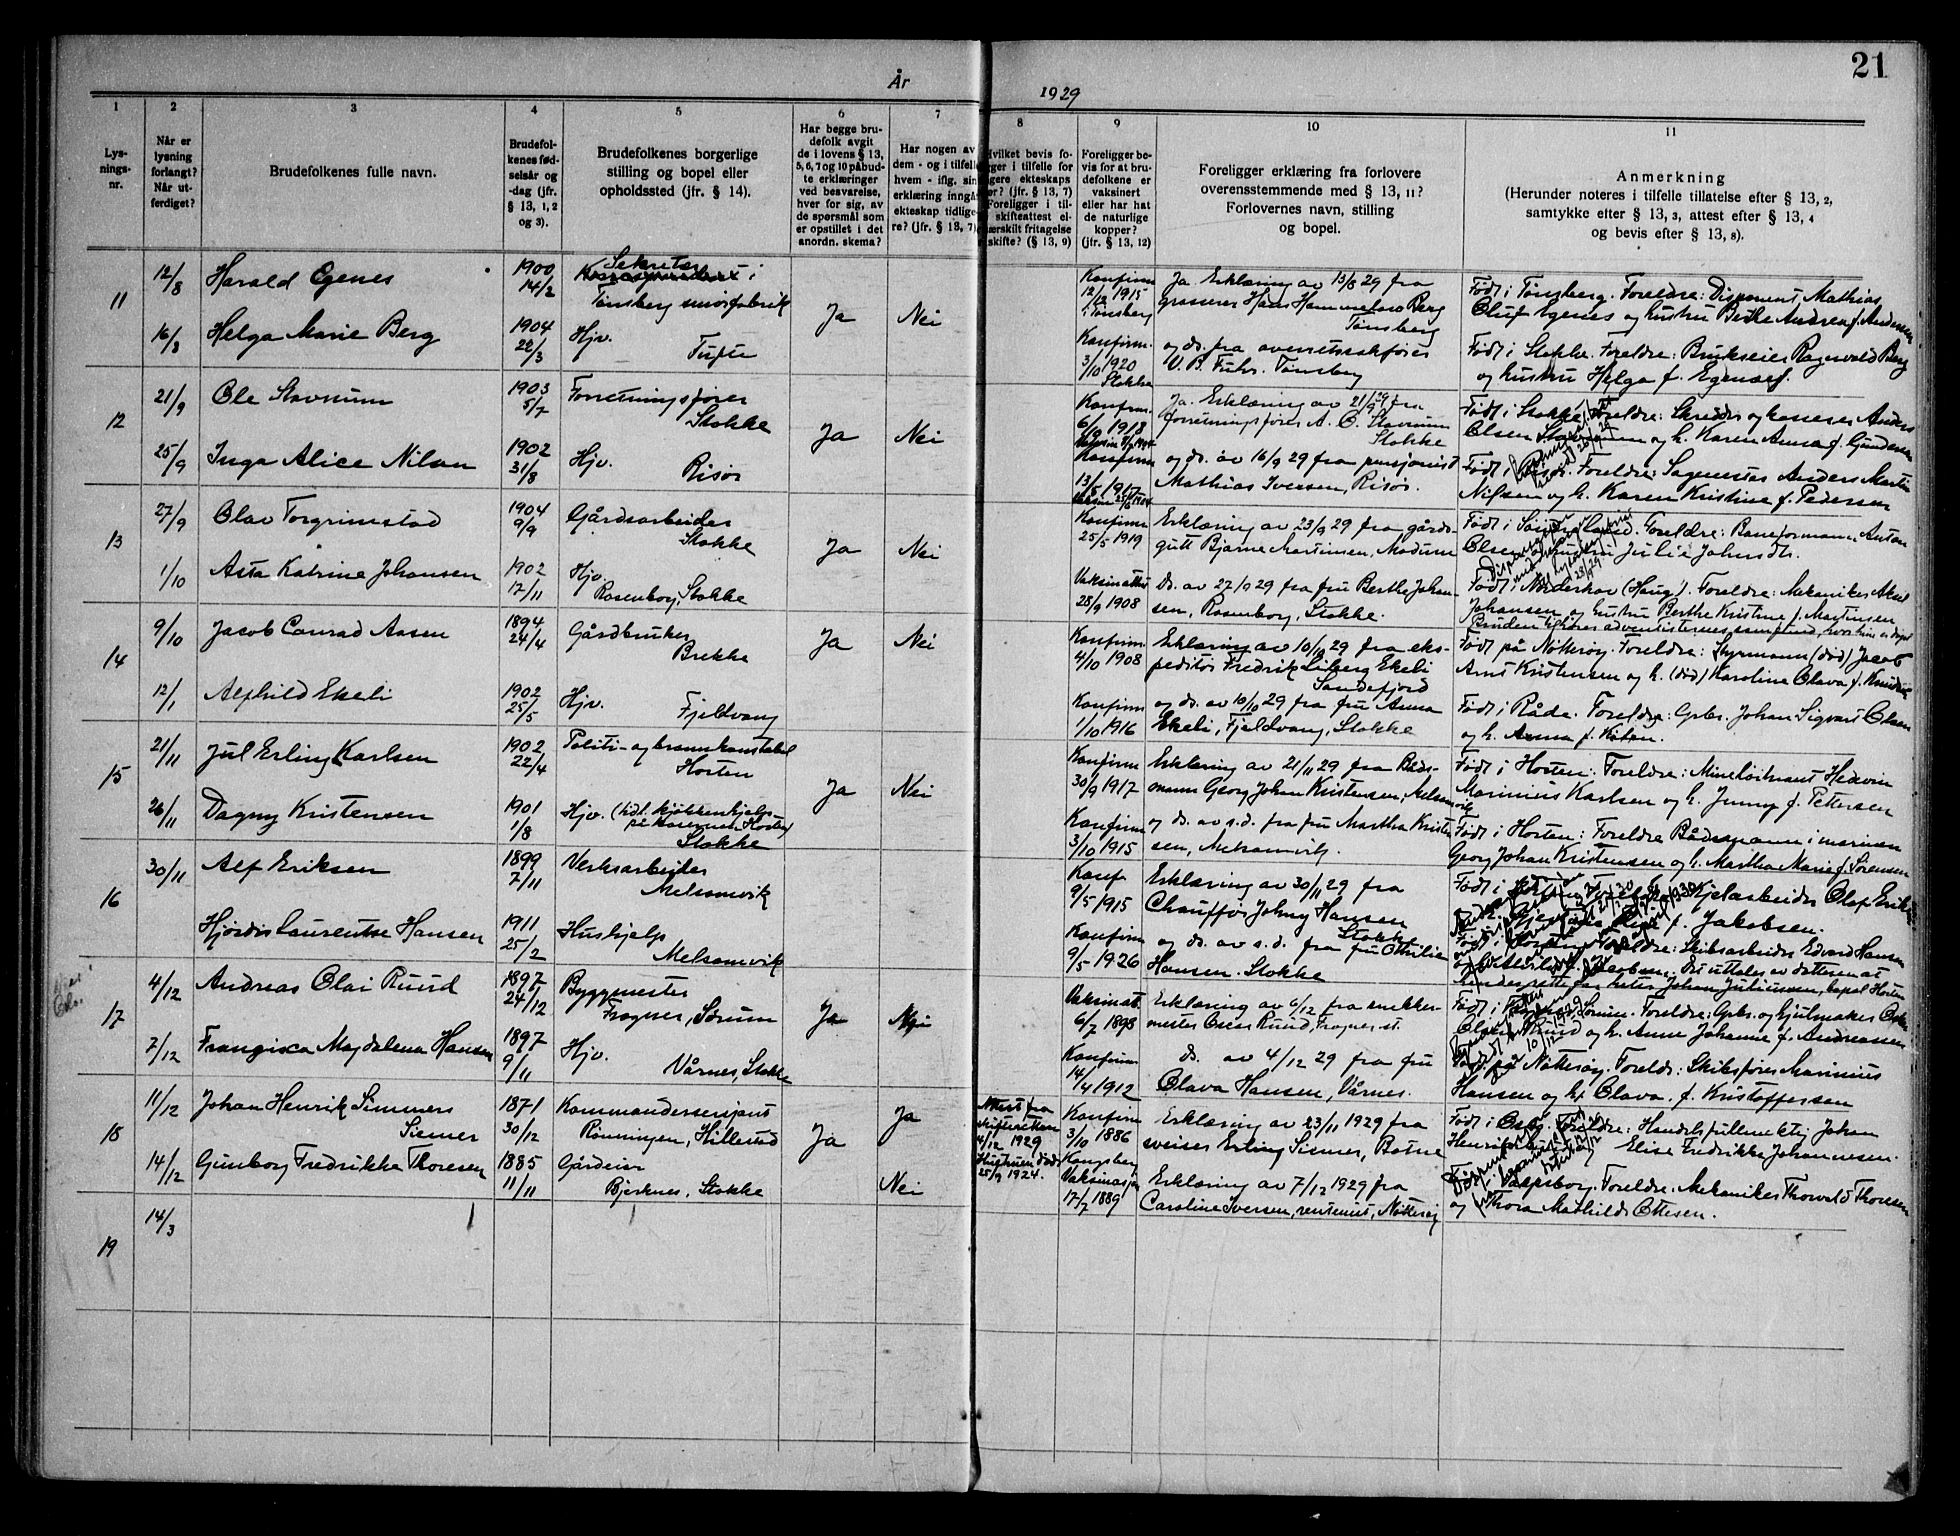 21
År 1929
1
2
3
4
5
6
7
8
9
10
11
Lys-
nings-
nr.
Når er
lysning
forlangt?
Når ut-
ferdiget?
Brudefolkenes fulle navn.
Brudefol-
kenes fød-
selsår og
-dag (jfr.
§ 13, 1, 2
og 3).
Brudefolkenes borgerlige
stilling og bopel eller
opholdssted (jfr. § 14).
Har begge bru-
defolk avgit
de i lovens § 13,
5, 6, 7 og 10 påbud-
te erklæringer
ved besvarelse,
hver for sig, av
de spørsmål som
er opstillet i det
anordn. skema?
Har nogen av
dem - og i tilfelle
hvem - iflg. sin
erklæring inngå
ekteskap tidlige-
re? (jfr. § 13, 7)
Hvilket bevis fo-
gger i tilfelle for
gere ekteskaps
er? (jfr. § 13, 7)
Foreligger i til-
skifteattest el-
særskilt fritagelse
skifte? (§ 13, 9)
Foreligger be-
vis for at bru-
defolkene er
vaksinert
eller har hat
de naturlige
kopper?
(jfr. § 13, 12)
Foreligger erklæring fra forlovere
overensstemmende med § 13, 11?
Forlovernes navn, stilling
og bopel.
Anmerkning
(Herunder noteres i tilfelle tillatelse efter § 13, 2,
samtykke efter § 13, 3, attest efter § 13, 4
og bevis efter § 13, 8).
11
12/8 Harald Egenes
1900
14/2
Sekretær i
Tønsberg smørfabrik
Ja Nei
Konfirm
12/12 1915
i Tønsberg
Ja. Erklæring av 13/8 29 fra
grosserer Hans Berg
Tønsberg
Født i Tønsberg. Foreldre: Disponent Mathias
Oluf Egenes og hustru Andrea f. Andersen
16/8 Helga Marie Berg
1904
22/3
Hjv.
Tufte
Konfirm.
3/10 1920
Stokke
og do. fra overretssakfører
V. B. Fuhr. Tønsberg
Født i Stokke. Foreldre: Brukseier Ragnvald Berg
og hustru Helga f. Egenæs.
12
21/9 Ole Stavnum
1903
5/7
Forretningsfører
Stokke
Ja Nei
Konfirm.
6/10 1918
Ja. Erklæring av 21/9 29 fra
forretningsfører A. O. Stavnum
Stokke
Født i Stokke. Foreldre: Skredder og kasserer Anders
Olsen og h. Karen Anna f. Gundersen
25/9 Inga Alice Nilsen
1902
31/8
Hjv.
Risør
Konfirm
13/5 1917
og do. av 16/9 29 fra pensjonist
Mathias Iversen, Risør.
Født i Risør. Foreldre: Sagmester Anders Martin
Nilsen og h. Karen Kristine f. Pedersen
13
27/9 Olav Torgrimstad
1904
9/9
Gårdsarbeider
Stokke
Ja Nei
Konfirm
25/5 1919
Erklæring av 23/9 29 fra gårds-
gutt Bjarne Martinsen, Modum
Født i Foreldre: Baneformann Anton
Olsen og hustru Julie
1/10 Asta Katrine Johansen
1902
17/11
Hjv.
Rosenborg, Stokke
Vaksinattest
28/9 1908
Do. av 27/9 29 fra fru Berthe Johan-
sen, Rosenborg, Stokke.
Født i Nøderhov (Haug). Foreldre: Mekaniker Aksel
Johansen og hustru Berthe Kristine f. Martinsen
Bruden tilhører adventisternes samfund, hvor hun er døpt
14
9/10 Jacob Conrad Aasen
1894
24/4
Gårdbruker
Brekke
Ja Nei
Konfirm
4/10 1908
Erklæring av 10/10 29 fra eks-
peditør Fredrik Ekeli
Sandefjord
Født på Nøtterøy. Foreldre: Styrmann (død) Jacob
Kristensen og h. (død) Karoline Olava f. Knudsen
12/1 Alfhild Ekeli
1902
25/5
Hjv.
Fjeldvang
Konfirm
1/10 1916
og do. av 10/10 29 fra fru Anna
Ekeli, Fjeldvang, Stokke
Født i Råde. Foreldre: Gpbr. Johan Sigvart Olsen
og h. Anna f.
15
21/11 Jul Erling Karlsen
1902
22/4
Politi- og brannkonstabel
Horten
Ja Nei
Konfirm
30/9 1917
Erklæring av 21/11 29 fra Båds-
mann Georg Johan Kristensen, Melsomvik
Født i Horten: Foreldre: Mineløitnant
Marinius Karlsen og h. Jenny f. Pettersen
26/11 Dagny Kristensen
1901
1/8
Hjv. (tidl. kjøkkenhjelp
på kasernen Horten)
Stokke
Konfirm
3/10 1915
og do. av s.d. fra fru Martha Kristen
sen, Melsomvik.
Født i Horten: Foreldre Bådsmann i marinen
Georg Johan Kristensen og h. Martha Marie f. Sørensen
16
30/11 Alf Eriksen
1899
7/11
Verksarbeider
Melsomvik
Konf.
9/5 1915
Erklæring av 30/11 29 fra
Chauffør Johny Hansen
Stokke
Født i Olaf Erik
f. Jakobsen.
Hjørdis Laurentse Hansen
1911
25/2
Hushjelp
Melsomvik
Konfirm
9/5 1926
og do. av s.d. fra fru Othilie
Hansen. Stokke
Foreldre: Skibsarbeider Edvard Hansen
Johan Juliussen, bopel Horten
17
4/12 Andreas Olai Ruud
1897
24/12
Byggmester
Frogner, Sørum
Ja Nei
Vaksinat.
6/7 1898
Erklæring av 6/12 fra snekker-
mester Oscar Ruud, Frogner st.
Født i Sørum. Foreldre: Gpbr. og hjulmaker
Ruud og h. Anne Johanne f. Andreassen
7/12 Frangisca Magdalena Hansen
1897
9/11
Hjv.
Vårnes, Stokke
Konfirm
14/4 1912
do. av 4/12 29 fra fru
Olava Hansen, Vårnes.
Født på Nøtterøy. Foreldr: Skibsfører Marinius
Hansen og h. Olava f. Kristoffersen
18
11/12 Johan Henrik Simmers
Siemer
1871
30/12
Kommandersersjant
Rønningen, Hillestad
Ja Ja
Attest fra
skifteretten
4/12 1929
Hustruen død
25/9 1924.
Konfirm
3/10 1886
Kongsberg
Erklæring av 23/11 1929 fra
sveiser Erling Siemer, Botne
Født i Oslo. Foreldre: Handelsfullmektig Johan
Henrik Elise Fredrikke Johannesen.
14/12 Gunborg Fredrikke Thoresen
1885
11/11
Gårdeier
Bjerknes, Stokke
Nei
Vaksinasjon
17/7 1889
Erklæring av 7/12 1929 fra
Caroline Iversen, rentenist, Nøtterøy
Født i Sarpsborg. Foreldre: Mekaniker Thorvald Thoresen
og Thora Mathilde Ottesen.
19
14/3